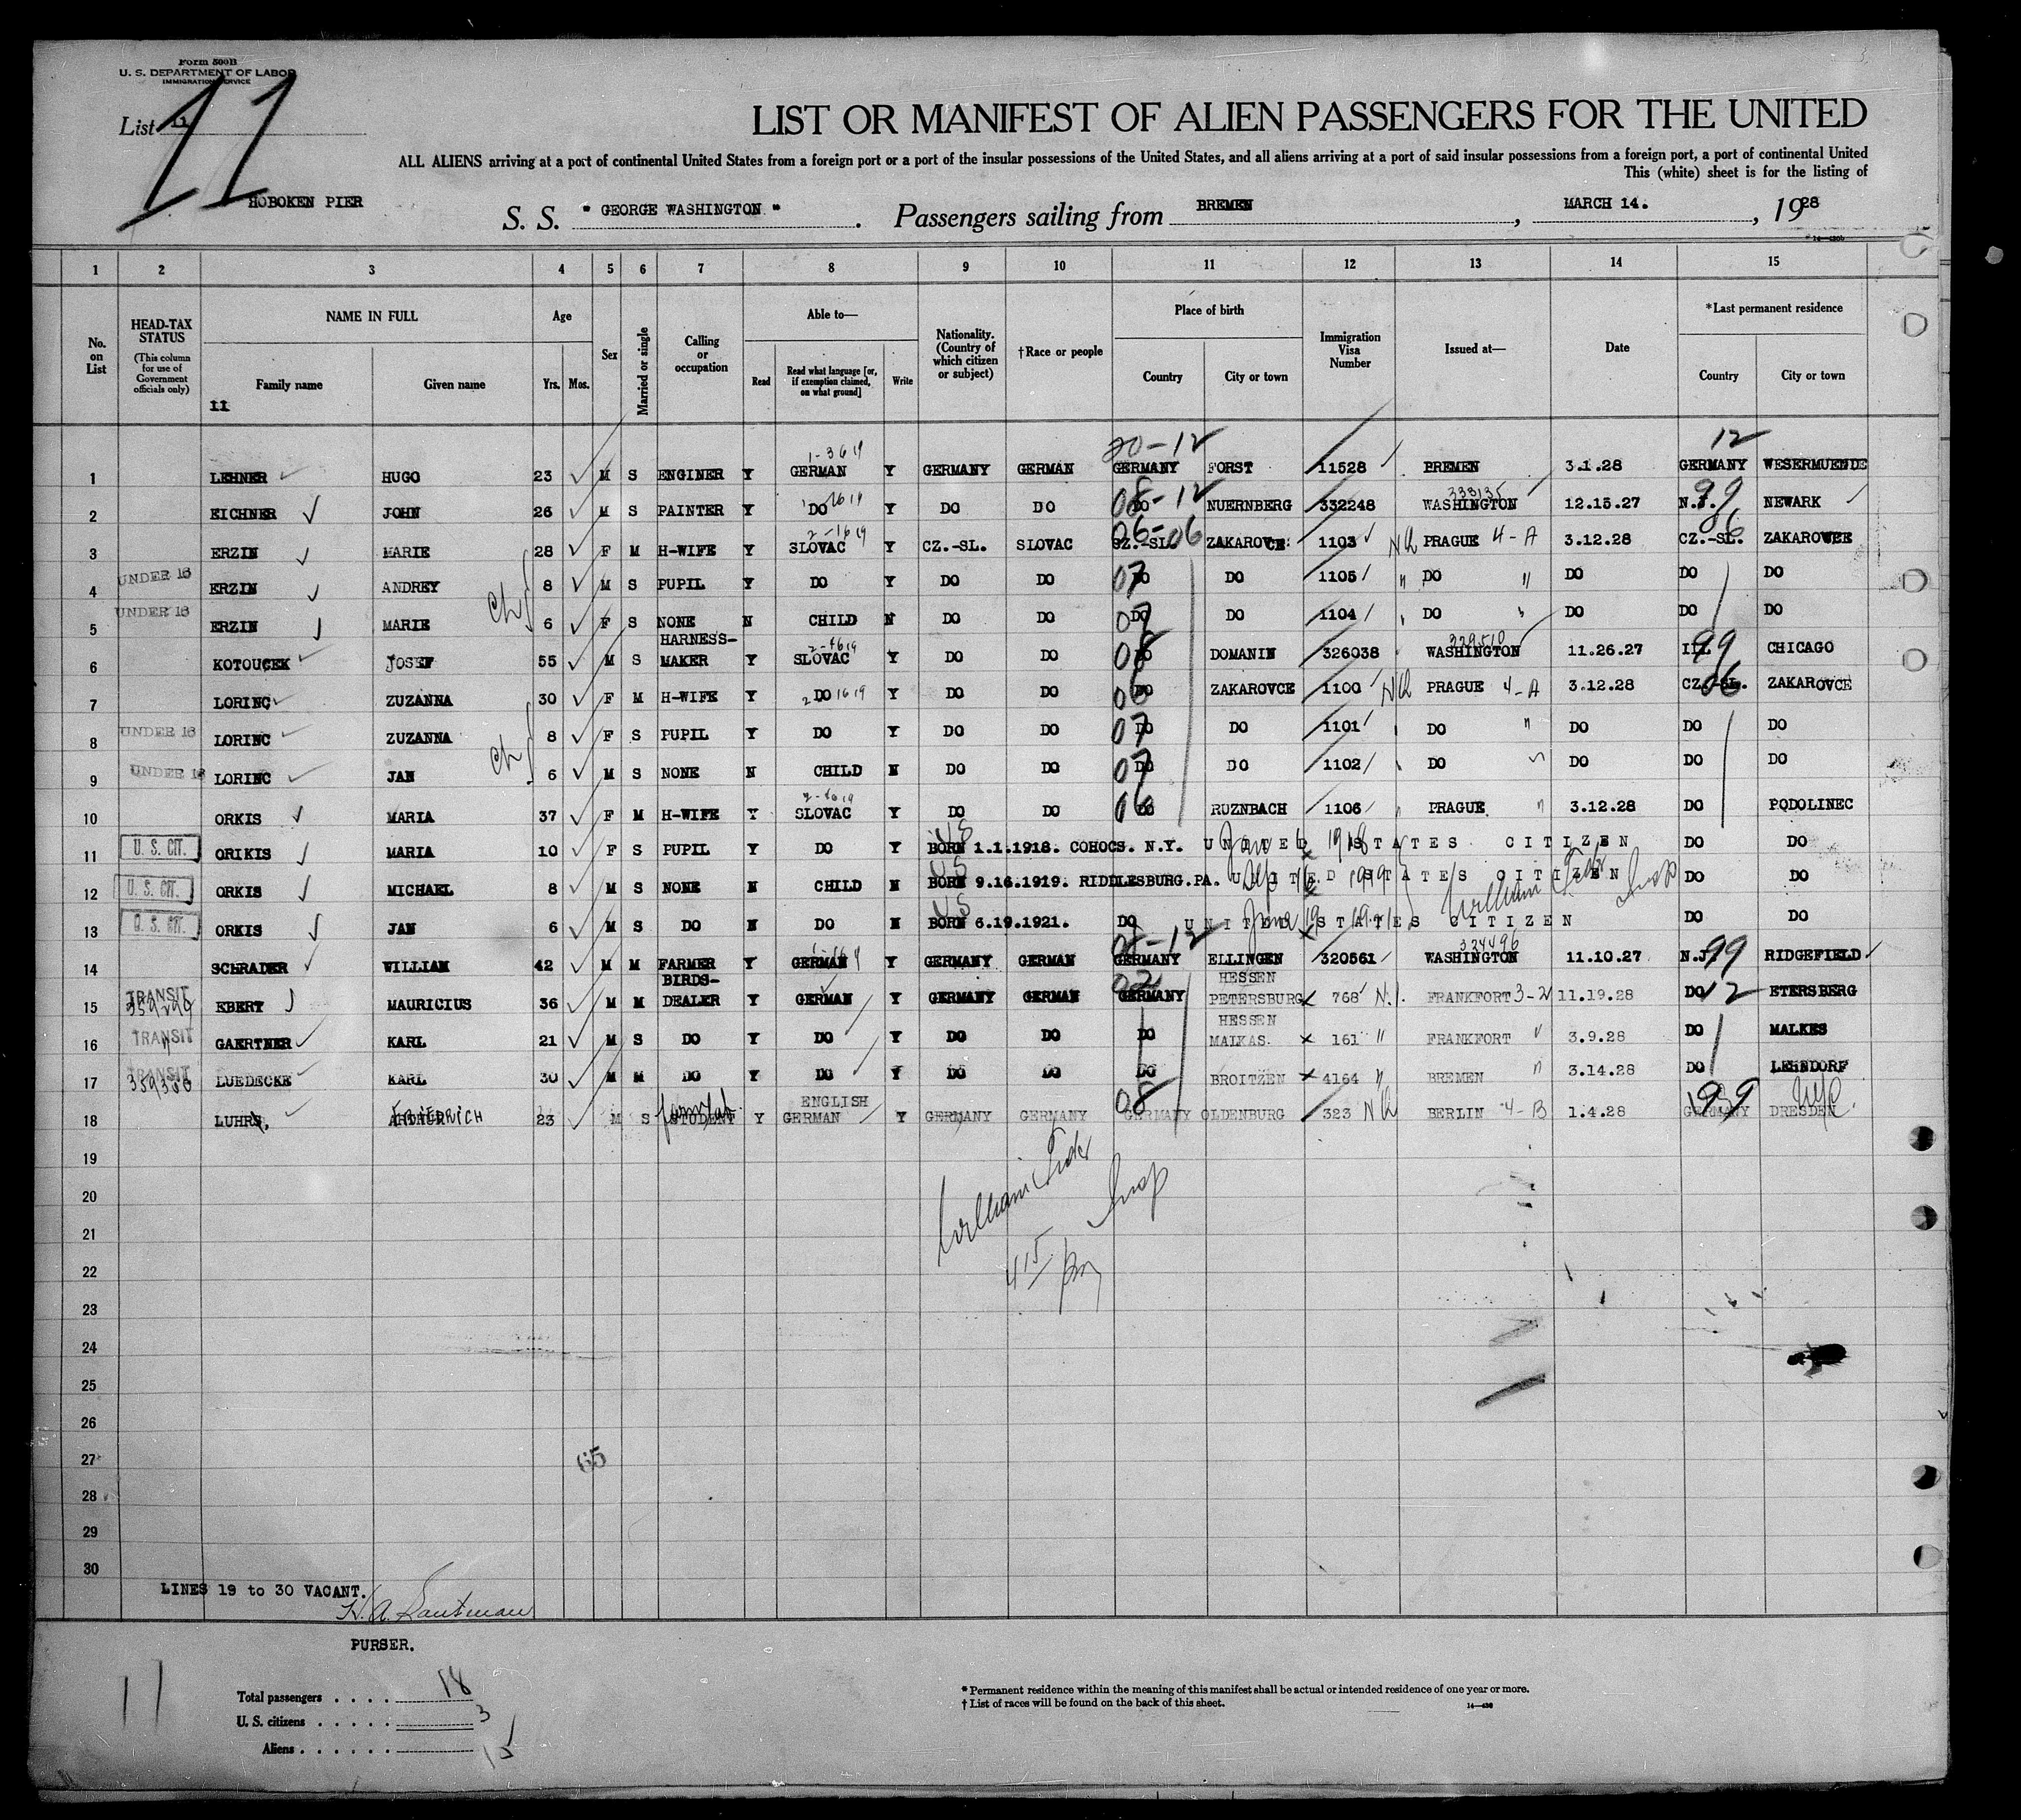 Form 500B
U. S. DEPARTMENT OF LABOR
IMMIGRATION SERVICE
List 11
HOBOKEN PIER
LIST OR MANIFEST OF ALIEN PASSENGERS FOR THE UNITED
ALL ALIENS arriving at a port of continental United States from a foreign port or a port of the insular possessions of the United States, and all aliens arriving at a port of said insular possessions from a foreign port, a port of continental United
This (white) sheet is for the listing of
S. S. " GEORGE WASHINGTON ". Passengers sailing from BREMEN, MARCH 14., 1928
1 2 3 4 5 6 7 8 9 10 11 12 13 14 15
No. on List
HEAD-TAX STATUS (This column for use of Government officials only)
NAME IN FULL Family name Given name
Age Yrs. Mos.
Sex
Married or single
Calling or occupation
Able to— Read Read what language [or, if exemption claimed, on what ground] Write
Nationality. (Country of which citizen or subject)
†Race or people
Place of birth Country City or town
Immigration Visa Number
Issued at—
Date
*Last permanent residence Country City or town
11
20-12 12
1 LEHNER HUGO 23 M S ENGINER Y GERMAN Y GERMANY GERMAN GERMANY FORST 11528 BREMEN 3.1.28 GERMANY WESERMUENDE
2 EICHNER JOHN 26 M S PAINTER Y DO Y DO DO DO NUERNBERG 332248 WASHINGTON 12.15.27 N.J. 99 NEWARK
3 ERZIN MARIE 28 F M H-WIFE Y SLOVAC Y CZ.-SL. SLOVAC CZ.-SL. 06-06 ZAKAROVCE 1103 NQ PRAGUE 4-A 3.12.28 CZ.-SL. 06 ZAKAROVCE
4 UNDER 16 ERZIN ANDREY 8 M S PUPIL Y DO Y DO DO DO 07 DO 1105 " DO " DO DO DO
5 UNDER 16 ERZIN MARIE 6 F S NONE N CHILD N DO DO DO 07 DO 1104 DO DO DO DO
6 KOTOUCEK JOSEF 55 M S HARNESS-MAKER Y SLOVAC Y DO DO DO 08 DOMANIN 326038 WASHINGTON 11.26.27 ILL 99 CHICAGO
7 LORINC ZUZANNA 30 F M H-WIFE Y DO Y DO DO DO 06 ZAKAROVCE 1100 NQ PRAGUE 4-A 3.12.28 CZ.-SL. 06 ZAKAROVCE
8 UNDER 16 LORINC ZUZANNA 8 F S PUPIL Y DO Y DO DO DO 07 DO 1101 DO " DO DO DO
9 UNDER 16 LORINC JAN 6 M S NONE N CHILD N DO DO DO 07 DO 1102 DO " DO DO DO
10 ORKIS MARIA 37 F M H-WIFE Y SLOVAC Y DO DO DO 06 RUZNBACH 1106 PRAGUE " 3.12.28 DO PODOLINEC
11 U. S. CIT. ORIKIS MARIA 10 F S PUPIL Y DO Y US BORN 1.1.1918. COHOCS. N.Y. UNITED STATES CITIZEN DO DO
12 U. S. CIT. ORKIS MICHAEL 8 M S NONE N CHILD N US BORN 9.16.1919. RIDDLESBURG.PA. UNITED STATES CITIZEN DO DO
13 U. S. CIT. ORKIS JAN 6 M S DO N DO N US BORN 6.19.1921. DO UNITED STATES CITIZEN DO DO
14 SCHRADER WILLIAM 42 M M FARMER Y GERMAN Y GERMANY GERMAN GERMANY ELLINGEN 320561 WASHINGTON 11.10.27 N.J. 99 RIDGEFIELD
15 TRANSIT EBERT MAURICIUS 36 M M BIRDS-DEALER Y GERMAN Y GERMANY GERMAN GERMANY HESSEN PETERSBURG 768 FRANKFORT 3-2 11.19.28 DO 12 ETERSBERG
16 TRANSIT GAERTNER KARL 21 M S DO Y DO Y DO DO DO HESSEN MALKAS. 161 " FRANKFORT " 3.9.28 DO MALKES
17 TRANSIT LUEDECKE KARL 30 M M DO Y DO Y DO DO DO BROITZEN 4164 " BREMEN " 3.14.28 DO LEHNDORF
18 LUHRS, FRIEDRICH 23 M S STUDENT Y ENGLISH GERMAN Y GERMANY GERMANY GERMANY 08 OLDENBURG 323 NQ BERLIN 4-B 1.4.28 GERMANY 99 DRESDEN
19
20
21
22
23
24
25
26
27
28
29
30
65
415 pm
LINES 19 to 30 VACANT.
PURSER.
11
Total passengers . . . . 18
U. S. citizens . . . . . 3
Aliens . . . . . . 15
* Permanent residence within the meaning of this manifest shall be actual or intended residence of one year or more.
† List of races will be found on the back of this sheet.